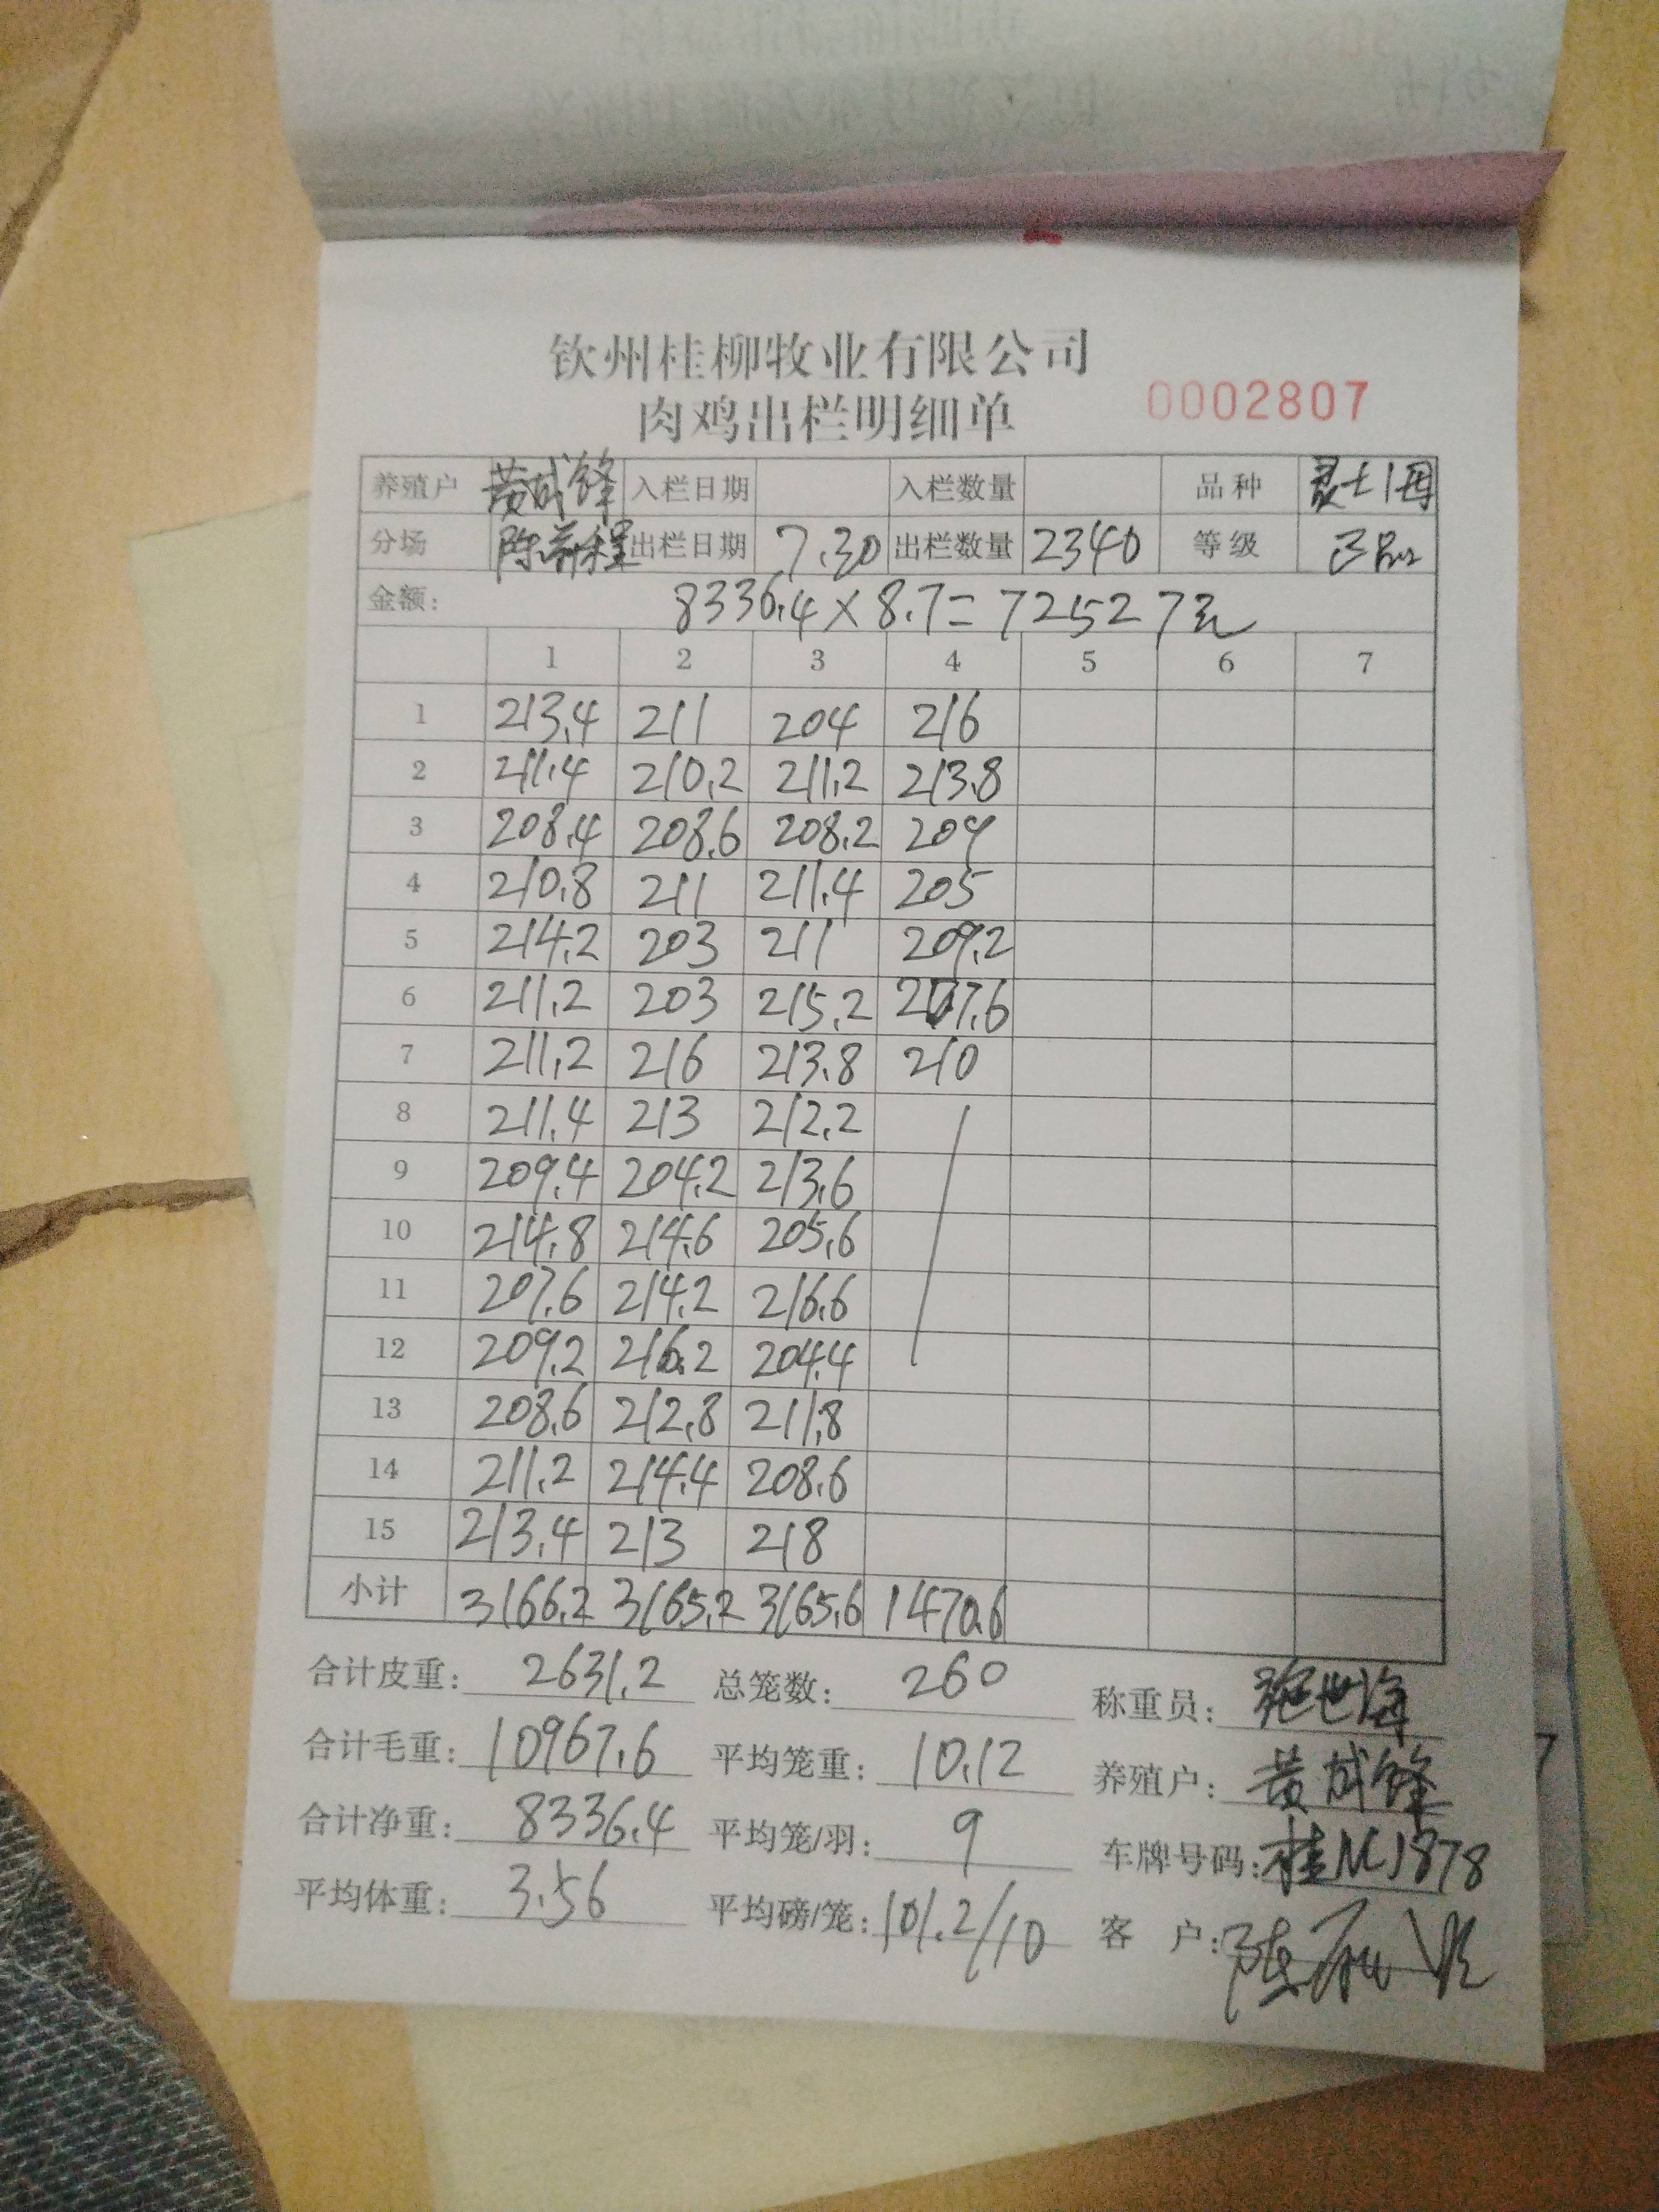 钦州桂柳牧业有限公司
肉鸡出栏明细单 0002807
养殖户 黄斌锋 入栏日期 入栏数量 品种
分场 出栏日期 7.30 出栏数量 2340 等级 正品
金额: 8336.4×8.7=72527元
1 2 3 4 5 6 7
1 213.4 211 204 216
2 211.4 210.2 211.2 213.8
3 208.4 208.6 208.2 209
4 210.8 211 211.4 205
5 214.2 203 211 209.2
6 211.2 203 215.2 207.6
7 211.2 216 213.8 210
8 211.4 213 212.2
9 209.4 204.2 213.6
10 214.8 214.6 205.6
11 207.6 214.2 216.6
12 209.2 216.2 204.4
13 208.6 212.8 211.8
14 211.2 214.4 208.6
15 213.4 213 218
小计 3166.2 3165.2 3165.6 1470.6
合计皮重: 2631.2 总笼数: 260 称重员: 世海
合计毛重: 10967.6 平均笼重: 10.12 养殖户: 黄斌锋
合计净重: 8336.4 平均笼/羽: 9 车牌号码: 桂NJ1878
平均体重: 3.56 平均磅/笼: 101.2/10 客户: 陈
7